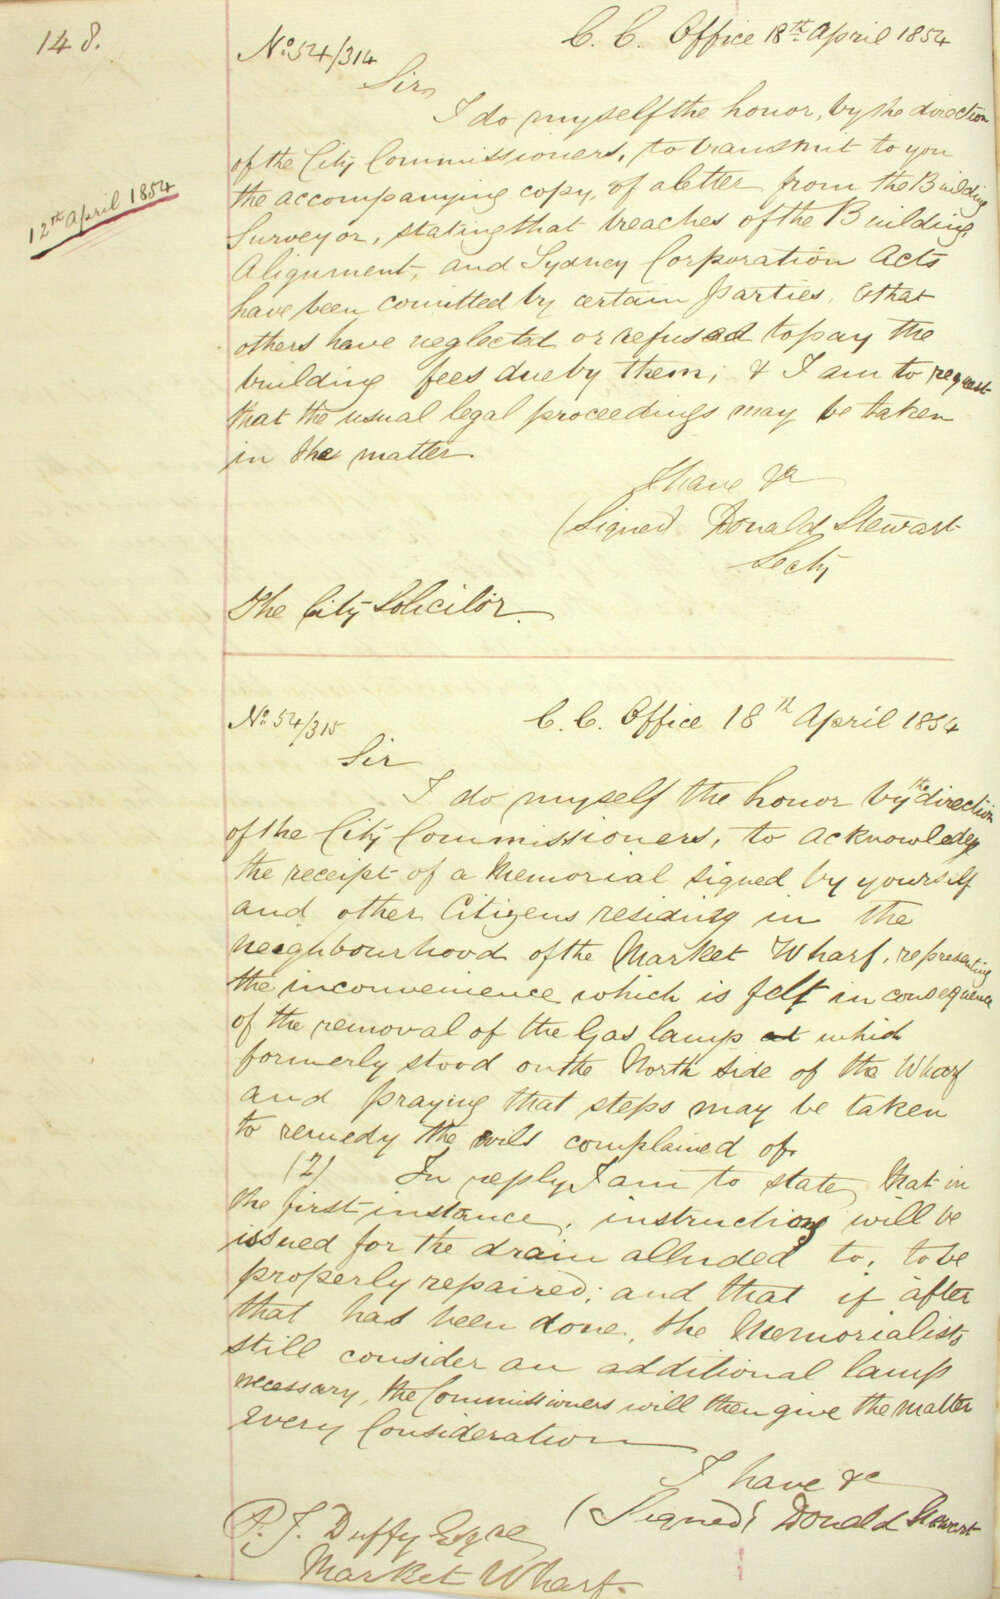 148.
No. 54/314
C. C. Office 18th April 1854
Sir,
I do myself the honor, by the direction
of the City Commissioners, to transmit to you
12th April 1854
the accompanying copy, of a letter from the Building
Surveyor, stating that breaches of the Building
Alignment, and Sydney Corporation Acts
have been comitted by certain parties, & that
others have neglected or refused to pay the
building fees due by them; & I am to request
that the usual legal proceedings may be taken
in the matter.
I have &c
(Signed) Donald Stewart
Secty
The City Solicitor.
No. 54/315
C. C. Office 18th April 1854
Sir
I do myself the honor by the direction
of the City Commissioners, to acknowledge
the receipt of a Memorial signed by yourself
and other Citizens residing in the
neighbourhood of the Market Wharf, representing
the inconvenience which is felt in consequence
of the removal of the Gas lamp at which
formerly stood on the North side of the Wharf
and praying that steps may be taken
to remedy the evils complained of.
(2) In reply I am to state, that in
the first instance, instructions will be
issued for the drain alluded to, to be
properly repaired; and that if after
that has been done, the Memorialists
still consider an additional lamp
necessary, the Commissioners will then give the matter
every Consideration
I have &c
(Signed) Donald Stewart
P. J. Duffy Esqre
Market Wharf.